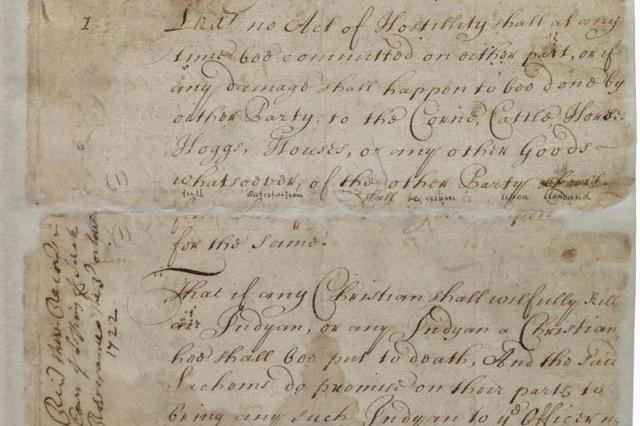 1 That no Act of Hostillity shall at any
time bee committed on either part, or if
any damage shall happen to bee done by
either Party: to the Corne, Cattle Horse
Hoggs, Houses, or any other Goods
whatsoever, of the other Party
full satisfaction shall be given upon demand
for the same.
That if any Christian shall wilfully kill
an Indyan, or any Indyan a Christian
hee shall bee put to death, And the said
Sachems do promise on their parts to
bring any such Indyan to ye Officer
1722